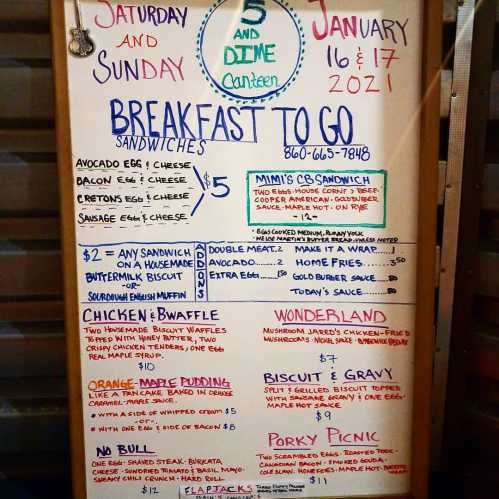 SATURDAY
AND
SUNDAY
5
AND
DIME
Canteen
JANUARY
16 & 17
2021
BREAKFAST TO GO
SANDWICHES
860-665-7848
AVOCADO EGG & CHEESE
BACON EGG & CHEESE
CRETONS EGG & CHEESE
SAUSAGE EGG & CHEESE
$5
MIMI'S CB SANDWICH
TWO EGGS - HOUSE CORN'D BEEF -
COOPER AMERICAN - GOLDBURGER
SAUCE - MAPLE HOT - ON RYE
-12-
• EGGS COOKED MEDIUM, RUNNY YOLK
• MARTIN'S BUTTER BREAD UNLESS NOTED
$2 = ANY SANDWICH
ON A HOUSEMADE
BUTTERMILK BISCUIT
-OR-
SOURDOUGH ENGLISH MUFFIN
ADD ONS
DOUBLE MEAT..2
AVOCADO.....2
EXTRA EGG....1.50
MAKE IT A WRAP.....1
HOME FRIES.....3.50
GOLD BURGER SAUCE...50
TODAY'S SAUCE....50
CHICKEN & BWAFFLE
TWO HOUSEMADE BISCUIT WAFFLES
TOPPED WITH HONEY BUTTER, TWO
CRISPY CHICKEN TENDERS, ONE EGG
REAL MAPLE SYRUP.
$10
ORANGE-MAPLE PUDDING
LIKE A PANCAKE BAKED IN ORANGE
CARAMEL-MAPLE SAUCE.
* WITH A SIDE OF WHIPPED CREAM $5
-OR-
* WITH ONE EGG & SIDE OF BACON $8
NO BULL
ONE EGG - SHAVED STEAK - BURRATA
CHEESE - SUNDRIED TOMATO & BASIL MAYO -
SNEAKY CHILI CRUNCH - HARD ROLL
$12
WONDERLAND
MUSHROOM JARED'S CHICKEN-FRIED
MUSHROOMS - NICKEL SAUCE - BUTTERMILK BISCUIT
$7
BISCUIT & GRAVY
SPLIT & GRILLED BISCUIT TOPPED
WITH SAUSAGE GRAVY & ONE EGG -
MAPLE HOT SAUCE
$9
PORKY PICNIC
TWO SCRAMBLED EGGS - ROASTED PORK -
CANADIAN BACON - SMOKED GOUDA -
COLESLAW - HOMEFRIES - MAPLE HOT -
$11
FLAPJACKS